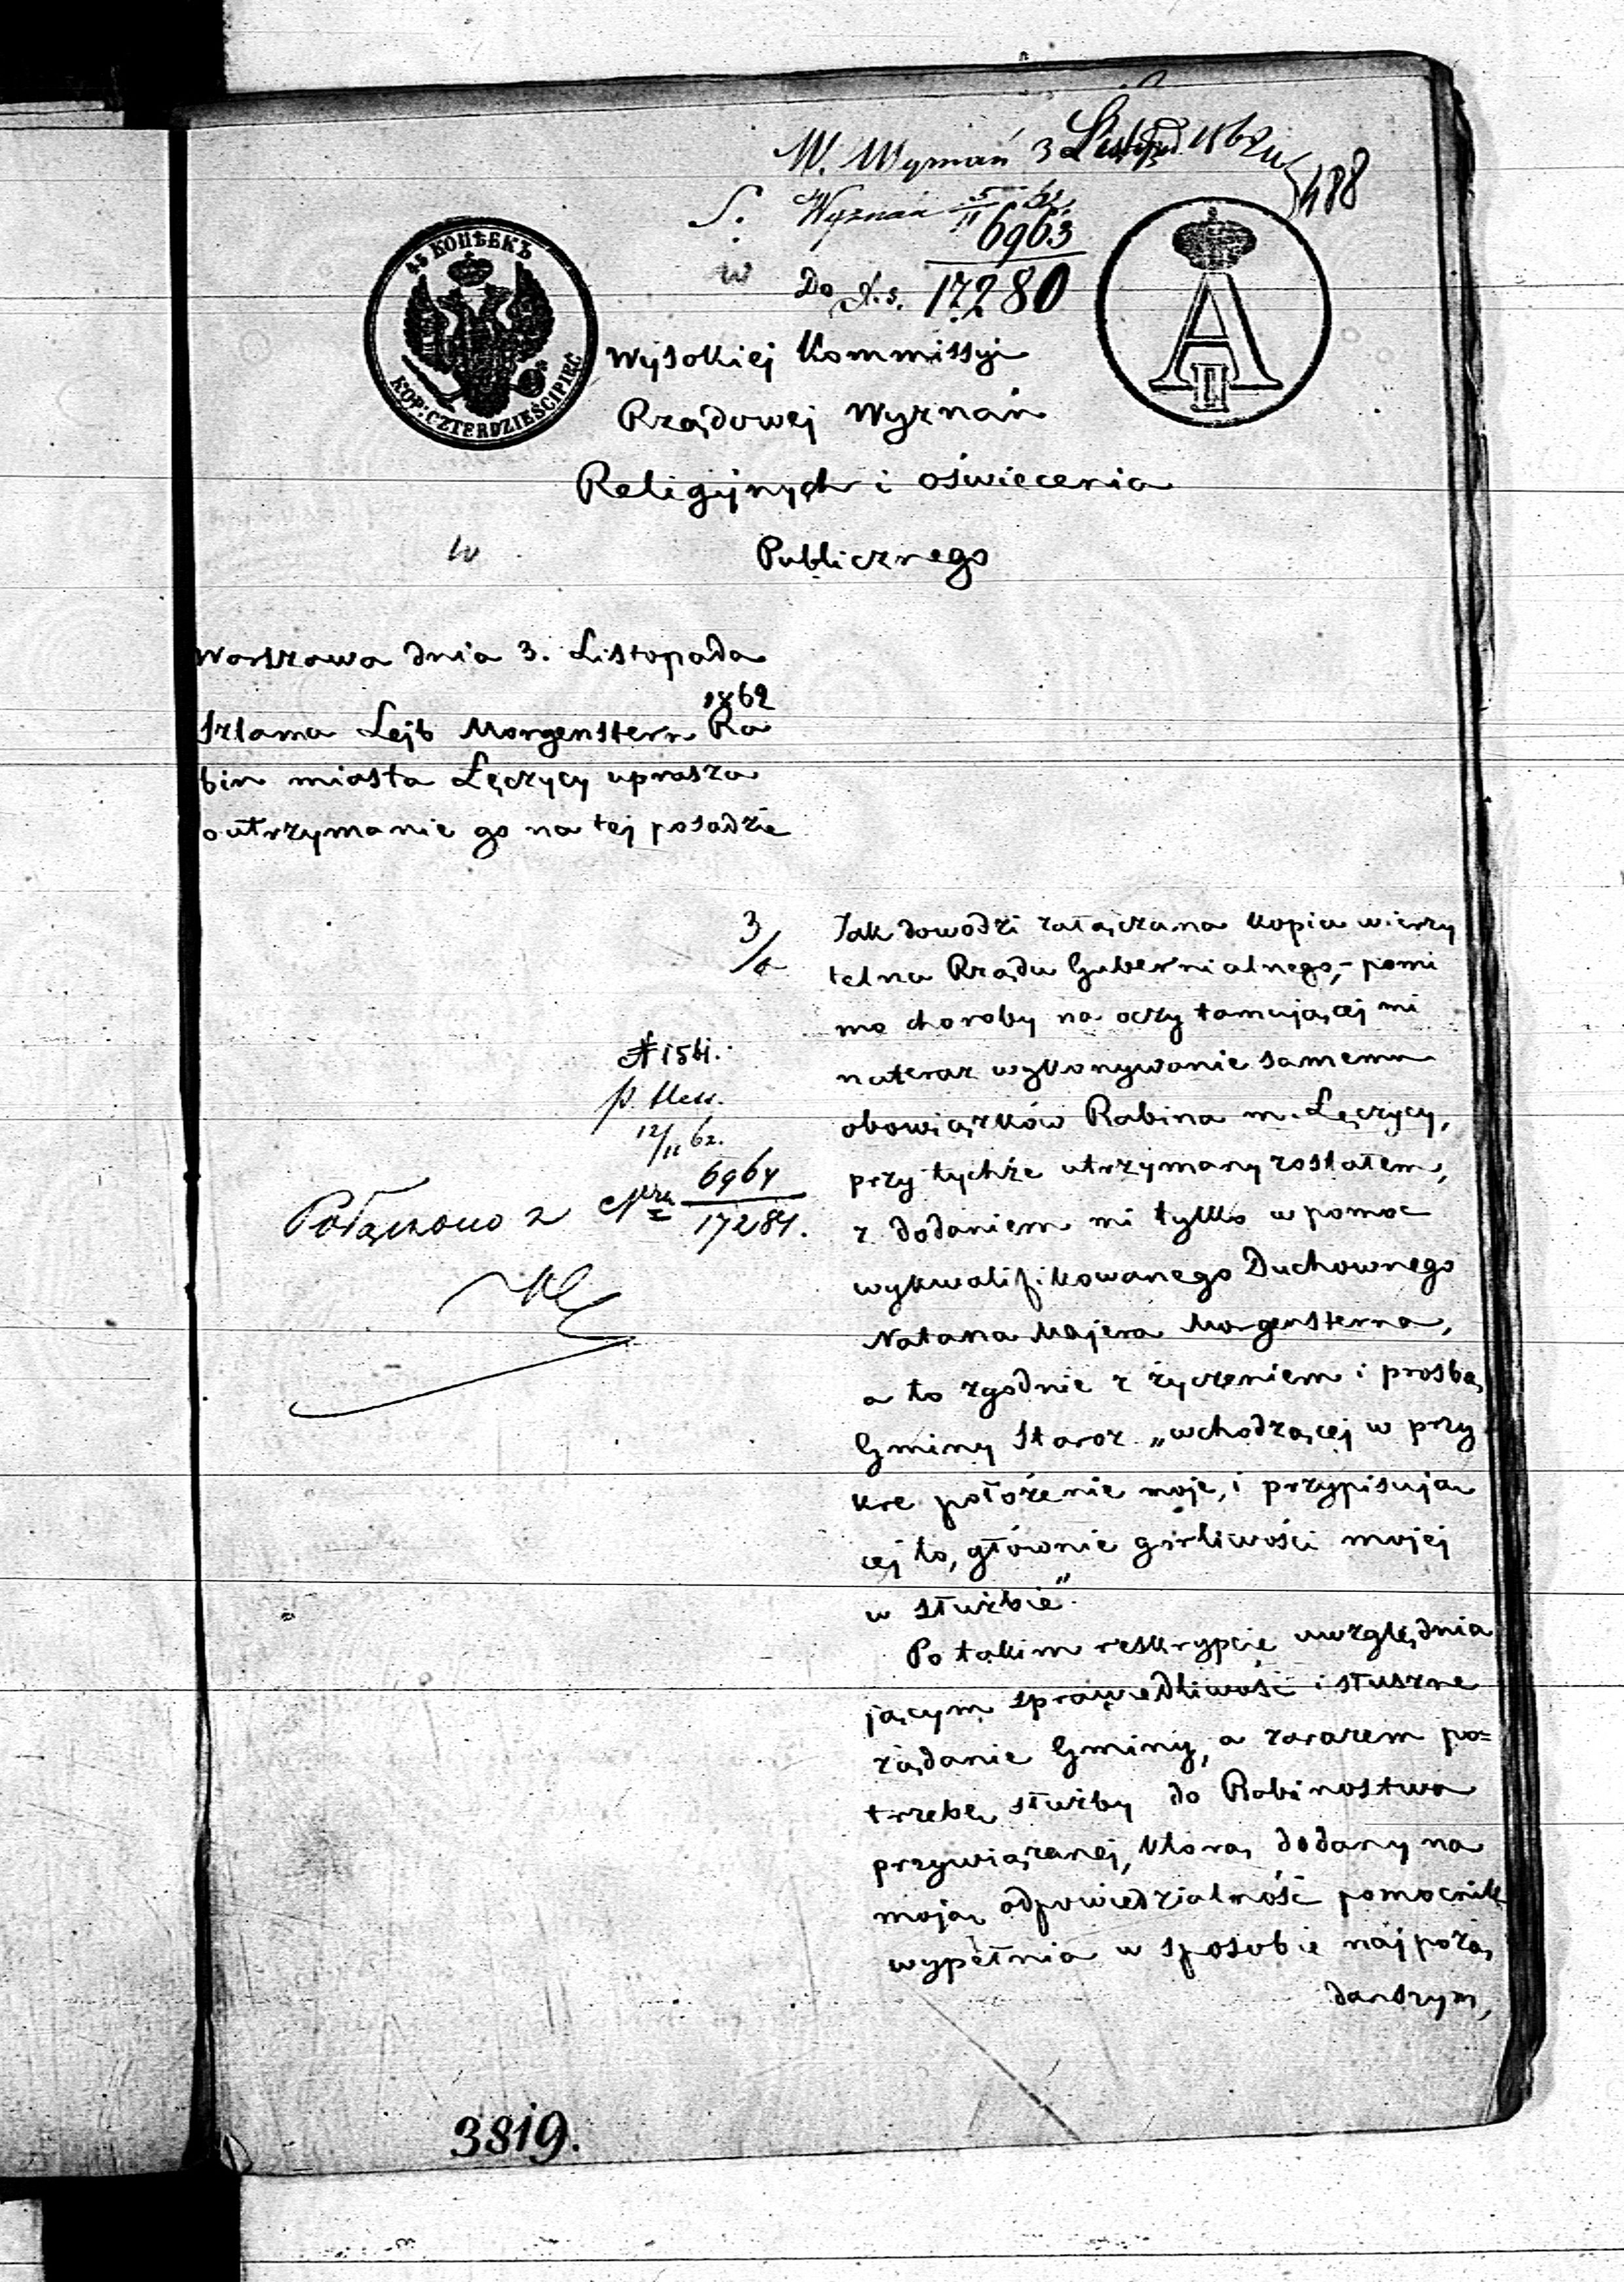 W. Wyznań 3 Listop. 1862 r.
488
S. Wyznań 5/11 62.
6963
w Do N. s. 17280
45 КОПѢЕКЪ
KOP: CZTERDZIEŚCI PIĘĆ
A II
Wysokiej Kommissyi
Rządowej Wyznań
Religijnych i oświecenia
w Publicznego
Warszawa dnia 3. Listopada
1862
Szlama Lejb Morgenstern Ra
bin miasta Łęczycy uprasza
o utrzymanie go na tej posadzie
3/a
Jak dowodzi załączana kopia wierzy
telna Rządu Gubernialnego,- pomi
mo choroby na oczy tamującej mi
nateraz wykonywanie samemu
obowiązków Rabina m. Łęczycy,
przy tychże utrzymany zostałem,
z dodaniem mi tylko w pomoc
wykwalifikowanego Duchownego
Natana Majera Morgensterna,
a to zgodnie z życzeniem i prośbą
Gminy Staroz. „wchodzącej w przy
kre położenie moje, i przypisują
cej to, głównie gorliwości mojej
w służbie".
Po takim reskrypcie uwzględnia
jącym sprawiedliwość i słuszne
żądanie Gminy, a zarazem po=
trzebę służby do Rabinostwa
przywiązanej, którą dodany na
moją odpowiedzialność pomocnik
wypełnia w sposobie najpożą
dańszym,
N 1561.
12/11 62.
Połączono z Nrm 6964
17281.
3819.